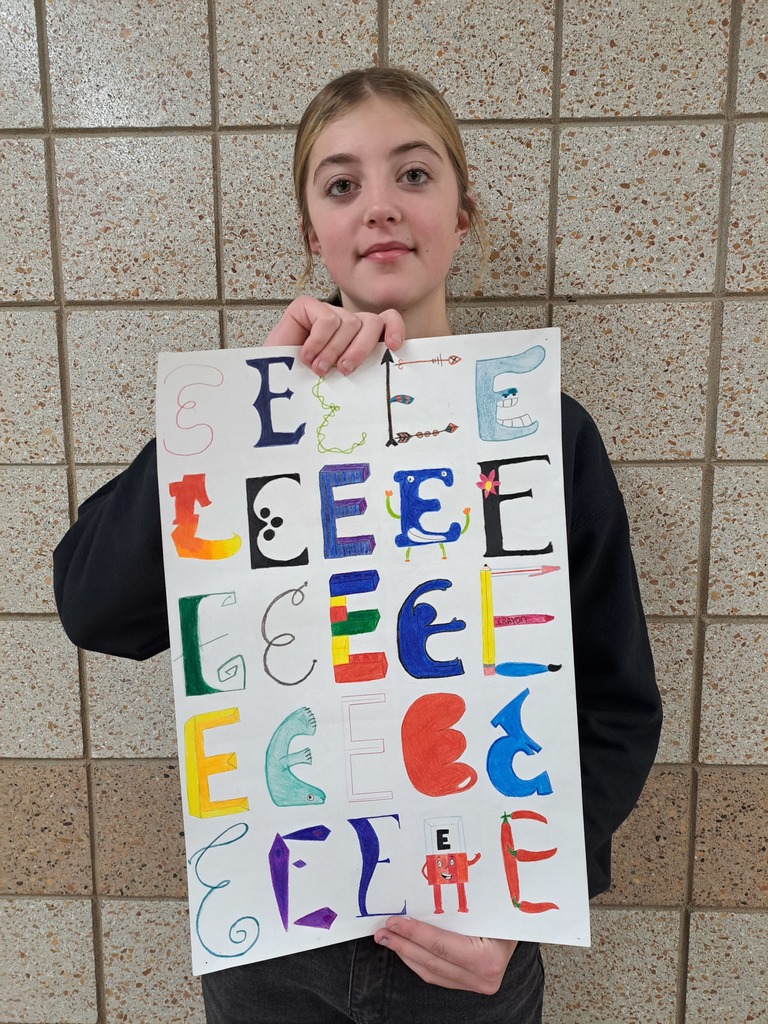 E E E E E
E E E E E
E E E E E
CRAYON
E E E E E
E E E E
E